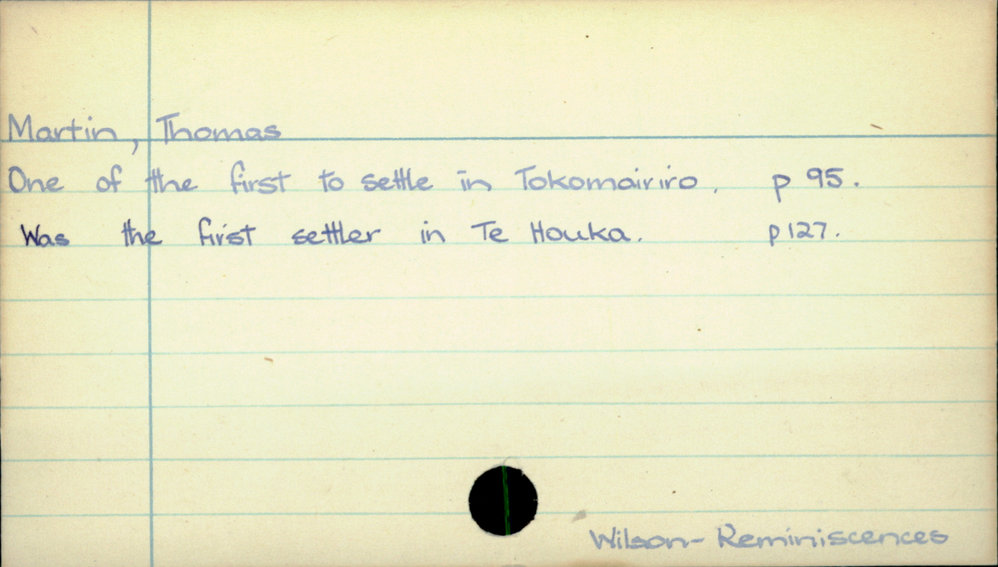 Martin, Thomas
One of the first to settle in Tokomairiro. p 95.
Was the first settler in Te Houka. p 127.
Wilson - Reminiscences